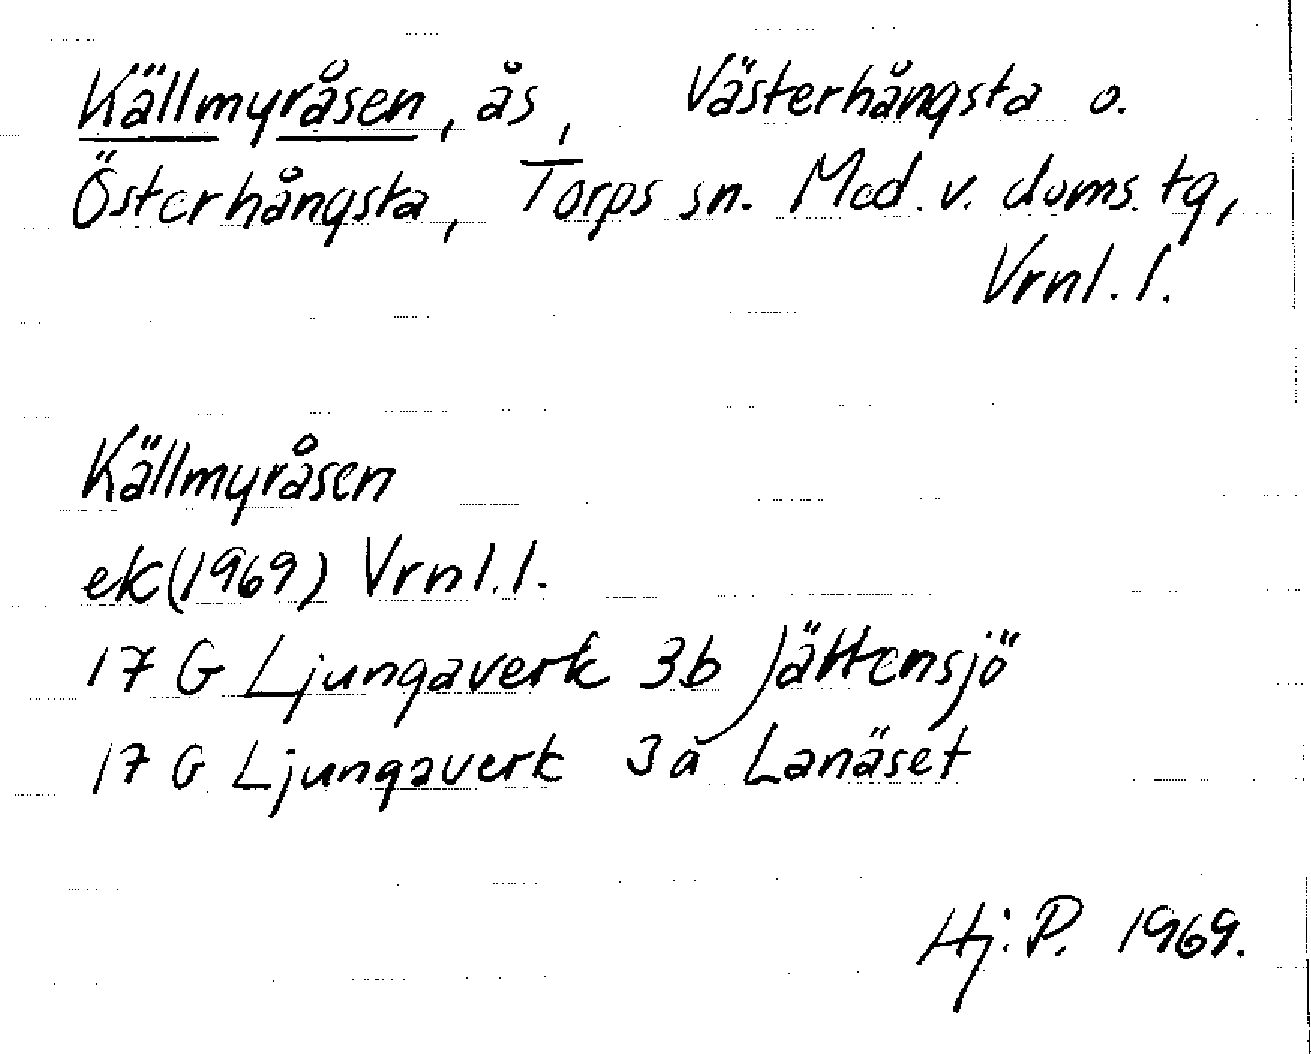 Källmyråsen, ås, Västerhångsta o.
Österhångsta, Torps sn. Med. v. doms. tg,
Vrnl. l.
Källmyråsen
ek (1969) Vrnl. l.
17 G Ljungaverk 3b Jättensjö
17 G Ljungaverk 3a Lanäset
Hj. P. 1969.